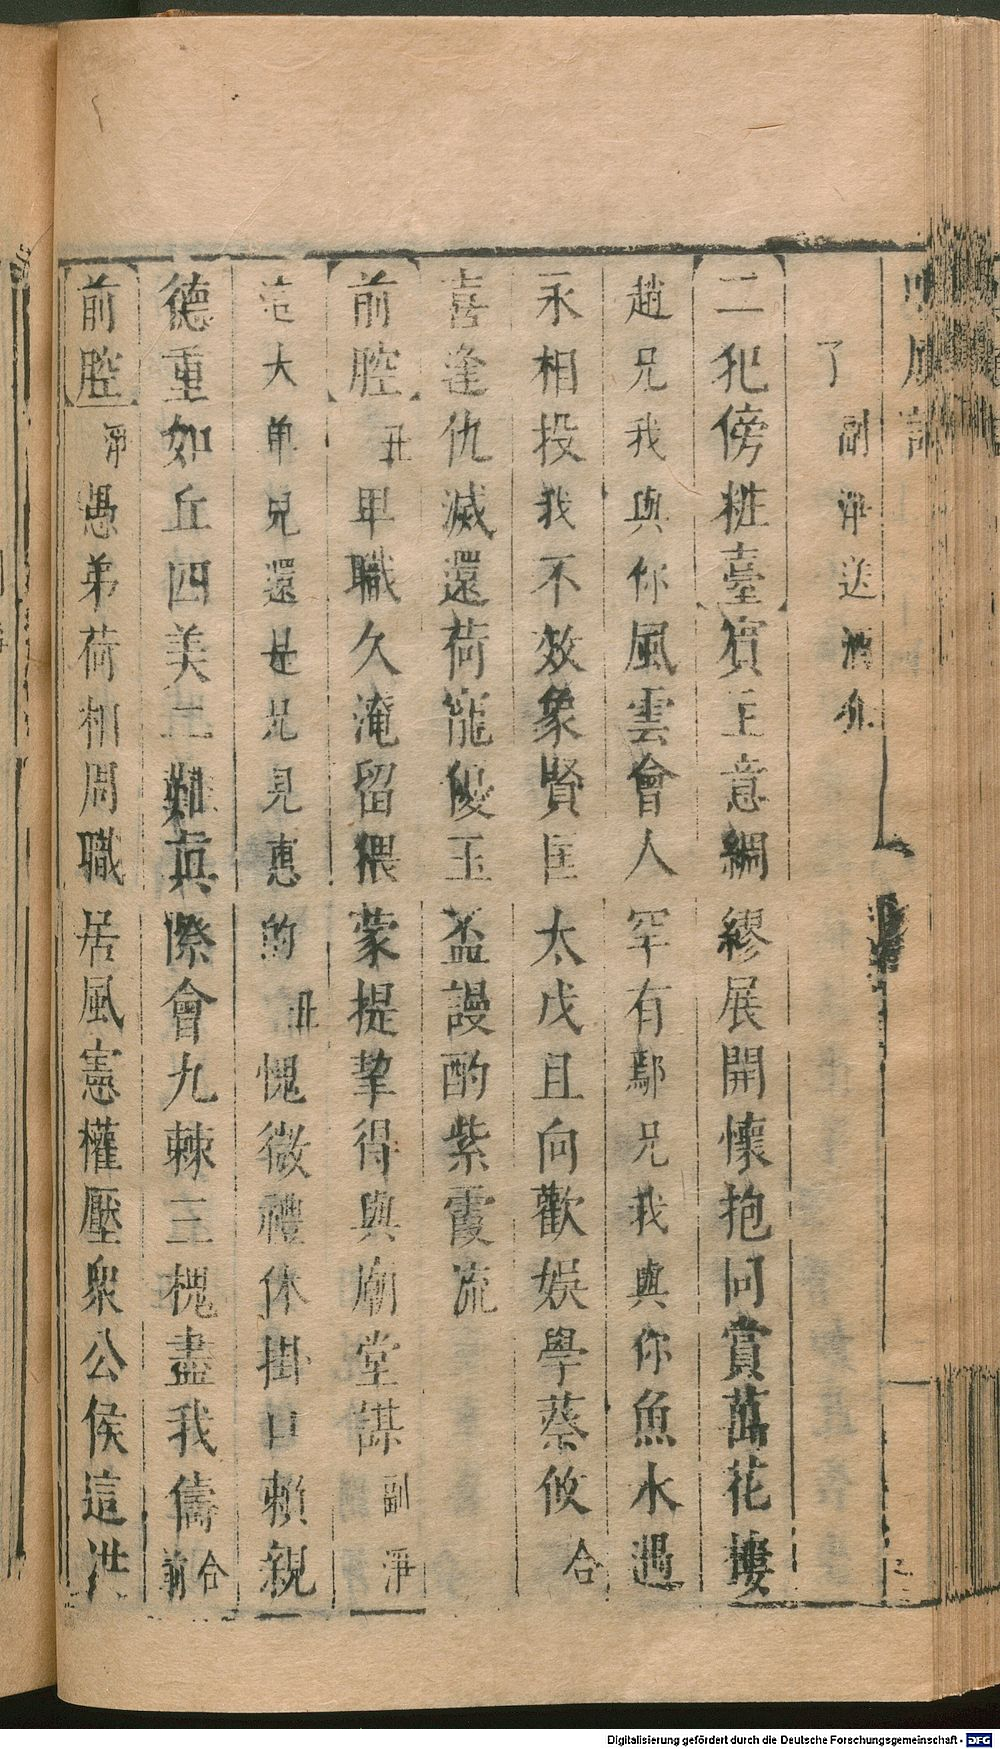 鳴鳳記
了 副淨送酒介
二犯傍粧臺 賓主意綢繆展開懷抱同賞萬花樓
趙兄我與你風雲會人罕有鄢兄我與你魚水遇
永相投我不效象賢匡太戊且向歡娛學蔡攸 合
喜逢仇滅還荷寵優玉盃謾酌紫霞流
前腔 丑 卑職久淹留猥蒙提挈得與廟堂謀 副淨
這大單兄還是兄見惠的 丑 愧微禮休掛口賴親
德重如丘四美二難真際會九棘三槐盡我儔 合前
前腔 淨 愚弟荷相周職居風憲權壓衆公侯這洪
Digitalisierung gefördert durch die Deutsche Forschungsgemeinschaft - DFG